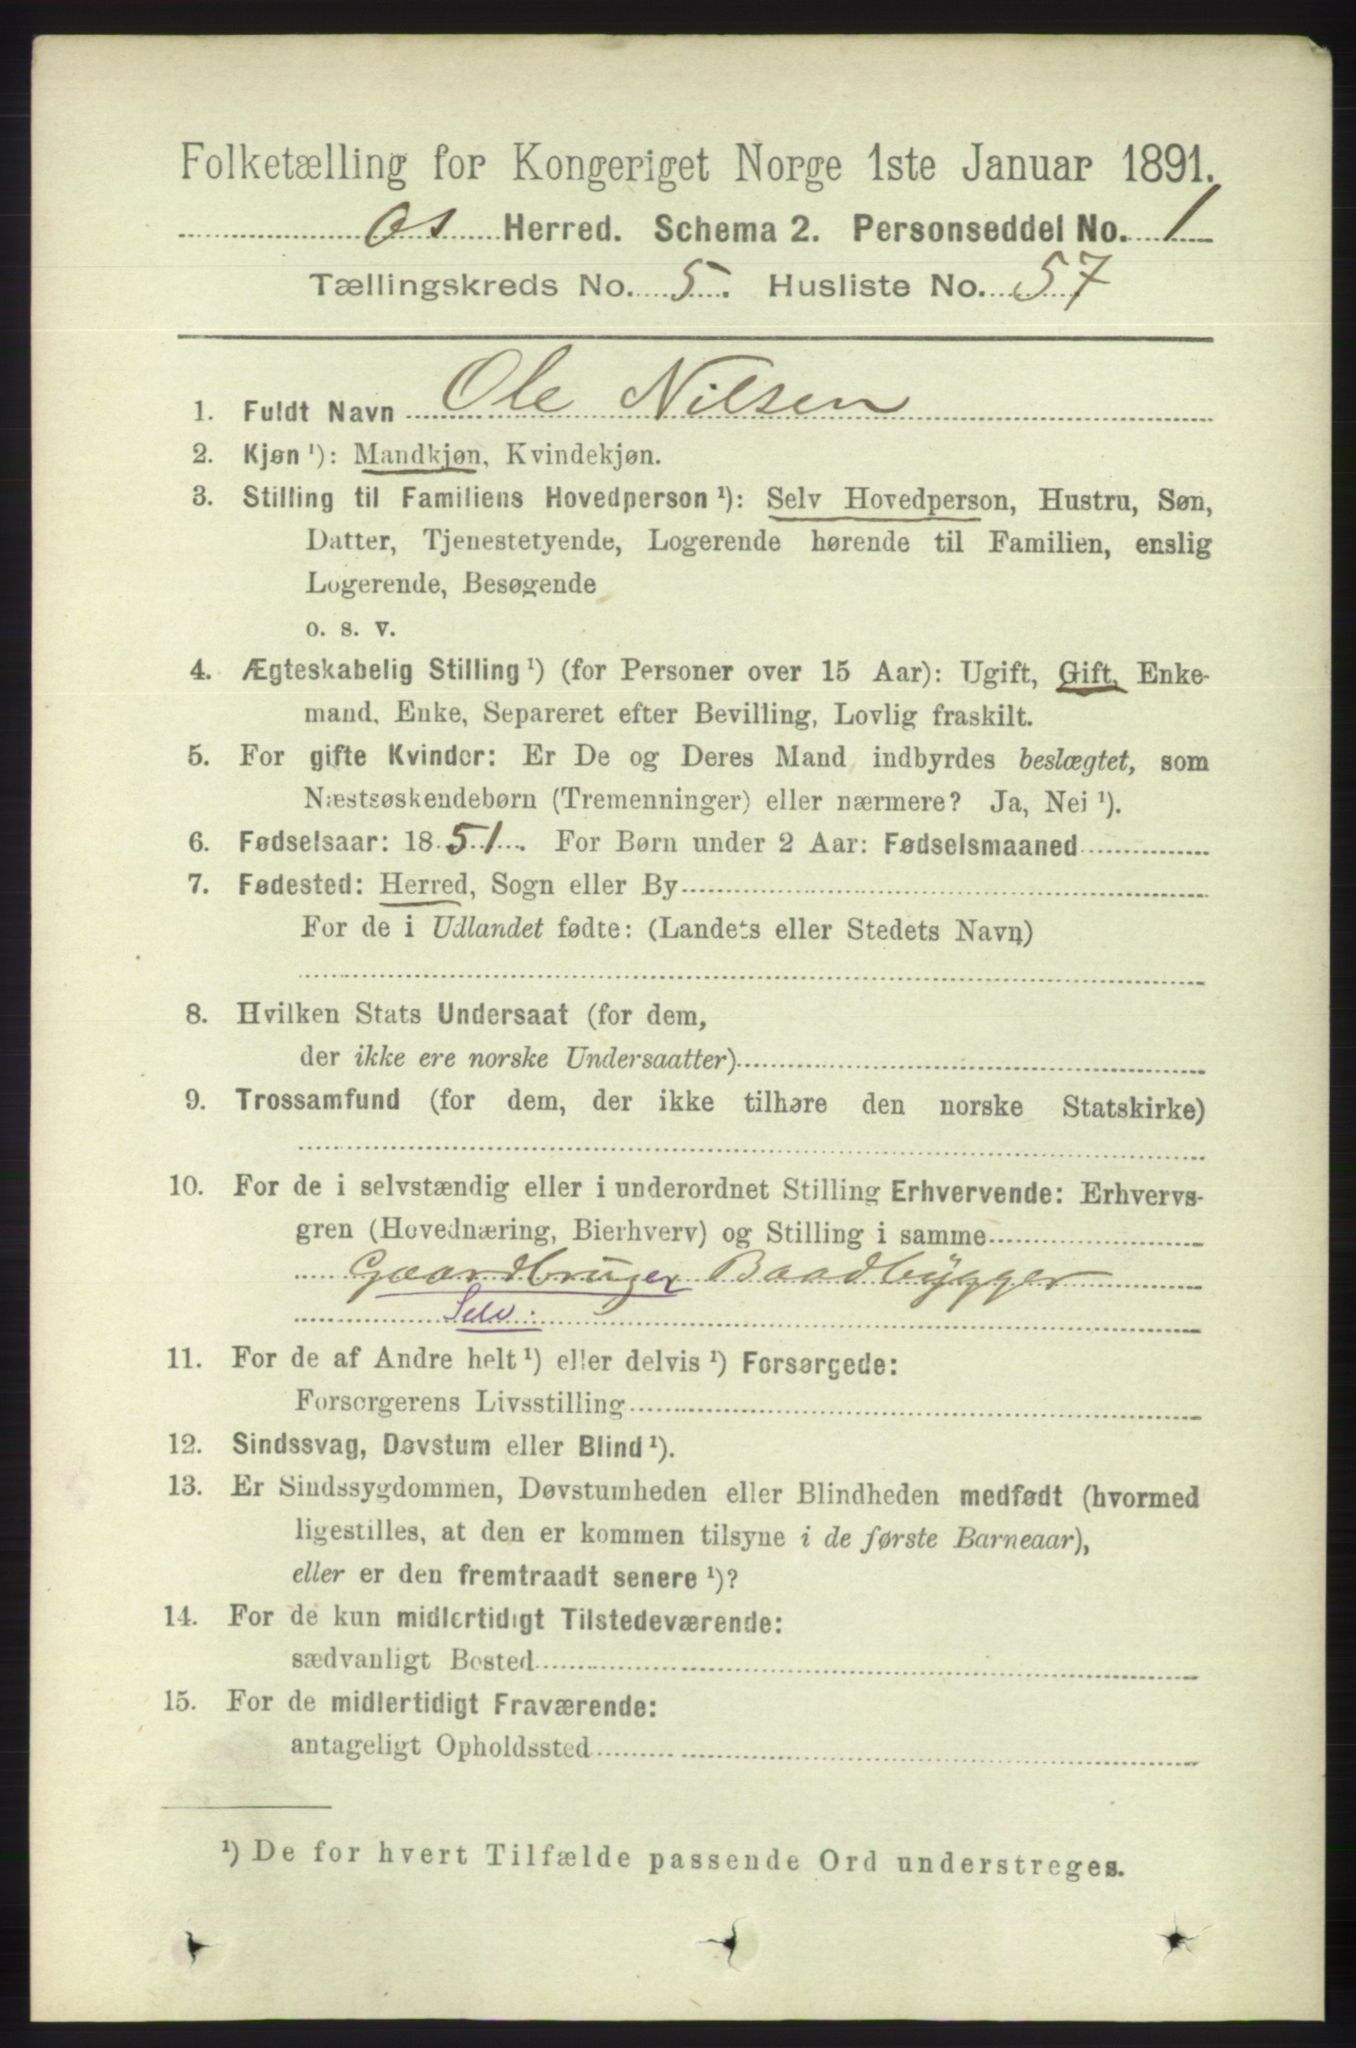 Folketælling for Kongeriget Norge 1ste Januar 1891.
Os Herred. Schema 2. Personseddel No. 1
Tællingskreds No. 5. Husliste No. 57
1. Fuldt Navn Ole Nilsen
2. Kjøn ¹): Mandkjøn, Kvindekjøn.
3. Stilling til Familiens Hovedperson ¹): Selv Hovedperson, Hustru, Søn,
Datter, Tjenestetyende, Logerende hørende til Familien, enslig
Logerende, Besøgende
o. s. v.
4. Ægteskabelig Stilling ¹) (for Personer over 15 Aar): Ugift, Gift, Enke-
mand, Enke, Separeret efter Bevilling, Lovlig fraskilt.
5. For gifte Kvinder: Er De og Deres Mand indbyrdes beslægtet, som
Næstsøskendebørn (Tremenninger) eller nærmere? Ja, Nei ¹).
6. Fødselsaar: 1851. For Børn under 2 Aar: Fødselsmaaned
7. Fødested: Herred, Sogn eller By
For de i Udlandet fødte: (Landets eller Stedets Navn)
8. Hvilken Stats Undersaat (for dem,
der ikke ere norske Undersaatter)
9. Trossamfund (for dem, der ikke tilhøre den norske Statskirke)
10. For de i selvstændig eller i underordnet Stilling Erhvervende: Erhvervs-
gren (Hovednæring, Bierhverv) og Stilling i samme
Gaardbruger Baadbygger
Selv.
11. For de af Andre helt ¹) eller delvis ¹) Forsørgede:
Forsørgerens Livsstilling
12. Sindssvag, Døvstum eller Blind ¹).
13. Er Sindssygdommen, Døvstumheden eller Blindheden medfødt (hvormed
ligestilles, at den er kommen tilsyne i de første Barneaar),
eller er den fremtraadt senere ¹)?
14. For de kun midlertidigt Tilstedeværende:
sædvanligt Bosted
15. For de midlertidigt Fraværende:
antageligt Opholdssted
¹) De for hvert Tilfælde passende Ord understreges.